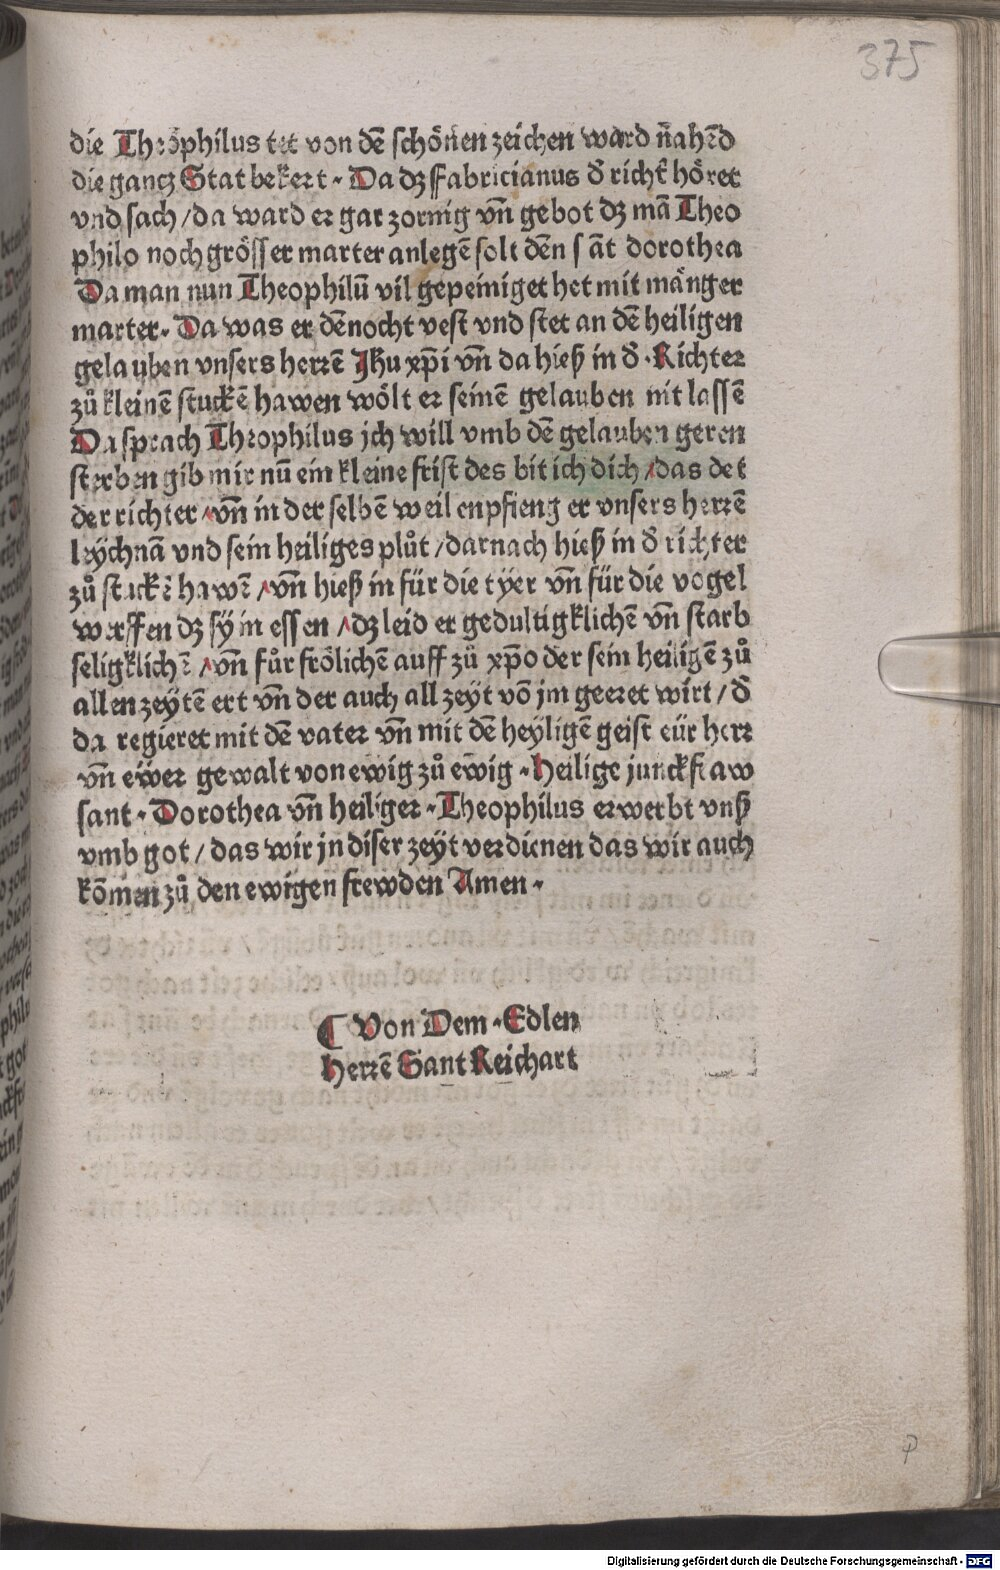 375
die Theophilus tet von dē schönen zeichen ward nahēd
die gantz Stat bekert · Da dz Fabricianus d̄ richt̄ höret
vnd sach / da ward er gar zornig vn̄ gebot dz mā Theo
philo noch grösser marter anlegē solt dēn sāt dorothea
Da man nun Theophilū vil gepeiniget het mit mänger
marter · Da was er dēnocht vest vnd stet an dē heiligen
gelauben vnsers herrē Jhu xp̄i vn̄ da hieß in d̄ · Richter
zů kleinē stuckē hawen wölt er seinē gelauben nit lassē
Da sprach Theophilus ich will vmb dē gelauben geren
sterben gib mir nū ein kleine frist des bit ich dich / das det
der richter / vn̄ in der selbē weil enpfieng er vnsers herrē
leychnā vnd sein heiliges plůt / darnach hieß in d̄ richter
zů stuckē hawē / vn̄ hieß in für die tyer vn̄ für die vogel
werffen dz sy in essen / dz leid er gedultigklichē vn̄ starb
seligklichē / vn̄ fůr frölichē auff zů xp̄o der sein heiligē zů
allen zeytē ert vn̄ der auch all zeyt vō jm geeret wirt / d̄
da regieret mit dē vater vn̄ mit dē heyligē geist eür herr
vn̄ ewer gewalt von ewig zů ewig · Heilige junckfraw
sant · Dorothea vn̄ heiliger · Theophilus erwerbt vnß
vmb got / das wir in diser zeyt verdienen das wir auch
kōmen zů den ewigen frewden Amen ·
¶ Von Dem · Edlen
Herrē Sant Reichart
Digitalisierung gefördert durch die Deutsche Forschungsgemeinschaft - DFG